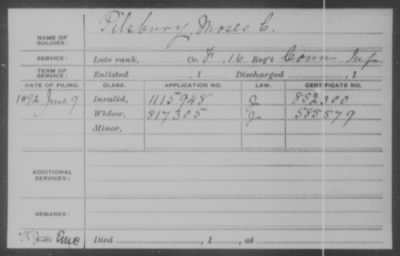 NAME OF SOLDIER: Pilsbury, Moses C.
SERVICE: Late rank, Co. F, 16 Reg't Conn Inf.
TERM OF SERVICE: Enlisted , 1 Discharged , 1
DATE OF FILING. CLASS. APPLICATION NO. LAW. CERTIFICATE NO.
1892 June 9 Invalid, 1115948 J 852300
Widow, 817305 J 585579
Minor,
ADDITIONAL SERVICES:
REMARKS:
Died , 1 , at